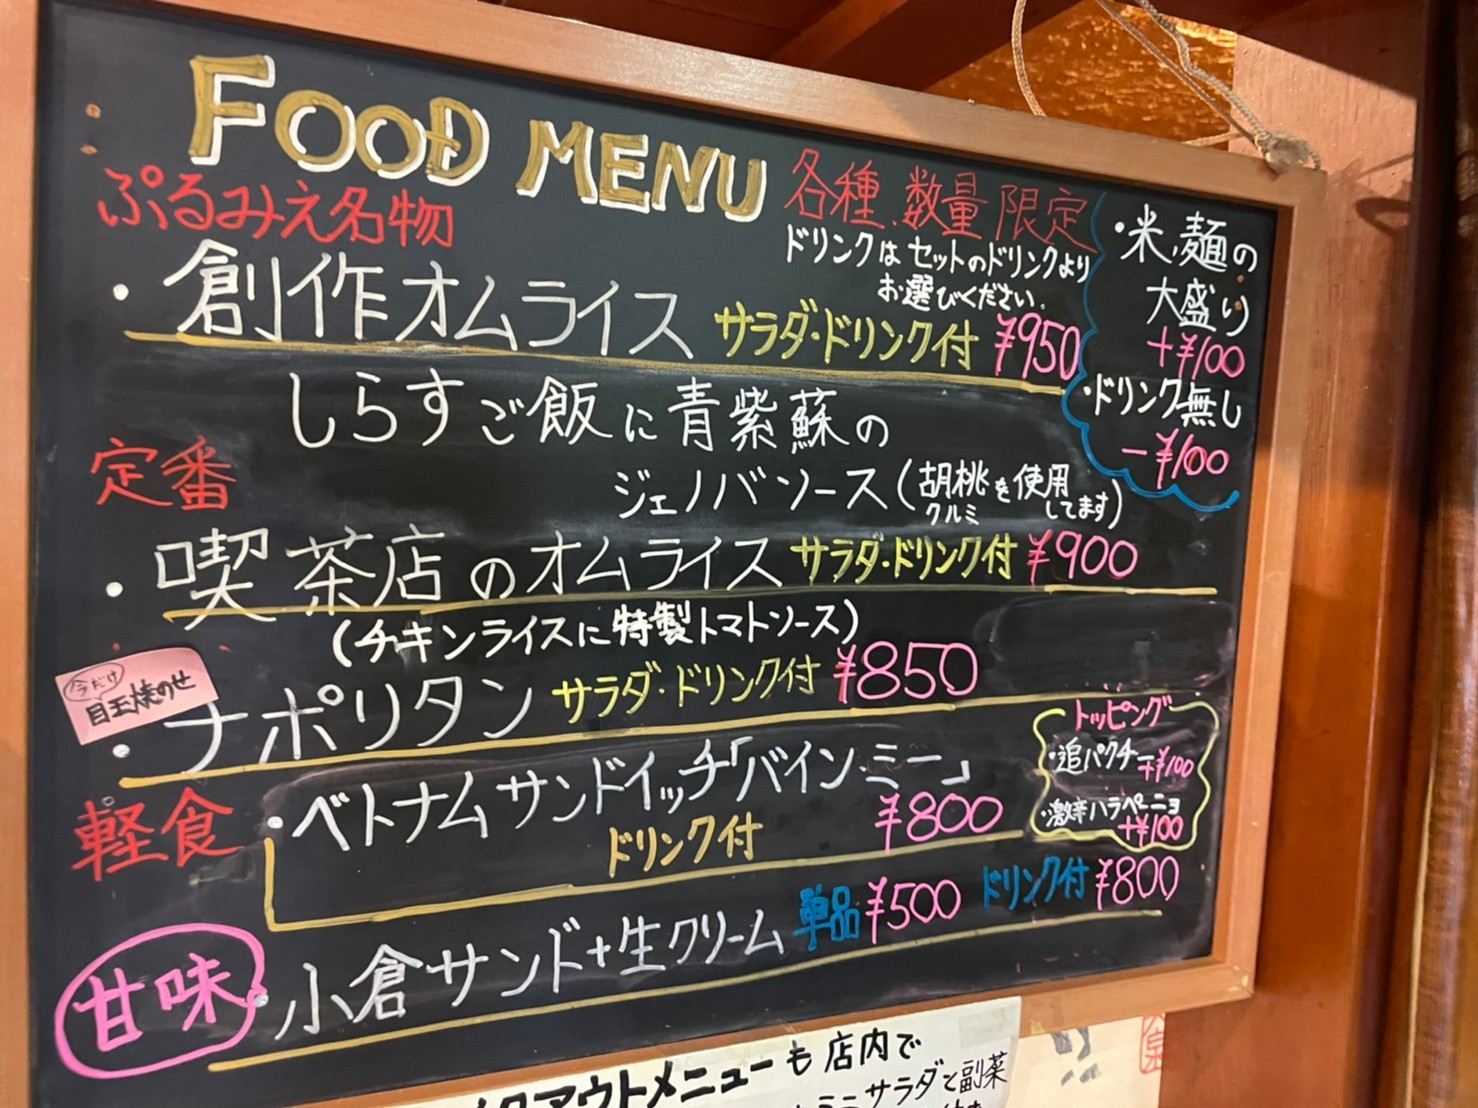 FOOD MENU
ぷるみえ名物
各種、数量限定
ドリンクはセットのドリンクより
お選びください.
・創作オムライス サラダ・ドリンク付 ¥950
・米、麺の
大盛り
+¥100
・ドリンク無し
-¥100
しらすご飯に青紫蘇の
ジェノバソース(胡桃を使用
クルミ
してます)
定番
・喫茶店のオムライス サラダ・ドリンク付 ¥900
(チキンライスに特製トマトソース)
今だけ
目玉焼のせ
・ナポリタン サラダ・ドリンク付 ¥850
軽食
・ベトナムサンドイッチ「バイン・ミー」
ドリンク付 ¥800
トッピング
・追パクチー
+¥100
・激辛ハラペーニョ
+¥100
甘味
・小倉サンド+生クリーム 単品 ¥500 ドリンク付 ¥800
アウトメニューも店内で
ミニサラダと副菜